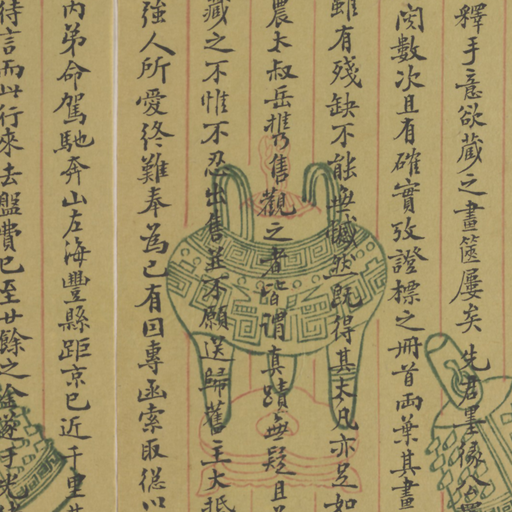 釋手意欲藏之畫篋屢矣先君墨緣
閱數次且有確實攷證標之册首兩葉其畫
雖有殘缺不能無憾然既得其大凡亦足如
農大叔岳攜售觀之者皆謂真蹟無疑且
藏之不惟不忍出售並不願送歸舊主大抵
強人所愛終難奉為已有因專函索取從以
內弟命駕馳奔山左海豐縣距京已近千里
待言而此行來去盤費已至廿餘之金遂